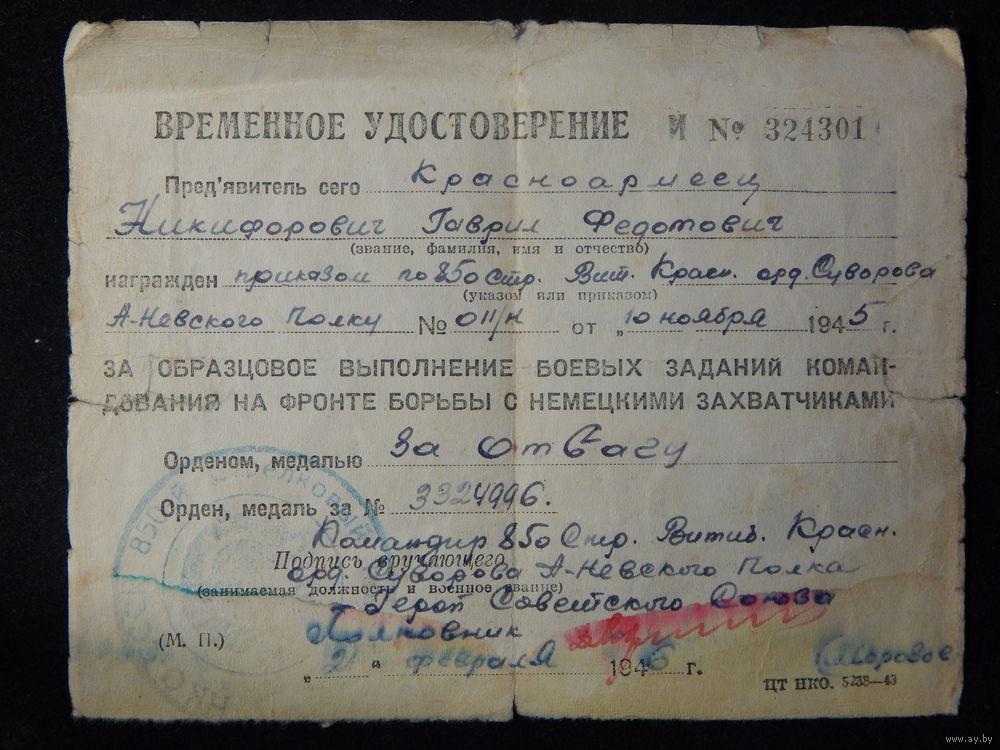 ВРЕМЕННОЕ УДОСТОВЕРЕНИЕ И № 324301
Пред'явитель сего Красноармеец
Никифорович Гаврил Федотович
(звание, фамилия, имя и отчество)
награжден приказом по 850 Стр. Вит. Красн. орд. Суворова
(указом или приказом)
А-Невского Полку № 011/н от „10 ноября 1945 г.
ЗА ОБРАЗЦОВОЕ ВЫПОЛНЕНИЕ БОЕВЫХ ЗАДАНИЙ КОМАН-
ДОВАНИЯ НА ФРОНТЕ БОРЬБЫ С НЕМЕЦКИМИ ЗАХВАТЧИКАМИ
Орденом, медалью За Отвагу
Орден, медаль за № 3324996.
Командир 850 Стр. Витиб. Красн.
Подпись вручающего
орд. Суворова А-Невского Полка
(занимаемая должность и военное звание)
Герой Советского Союза
(М. П.) Полковник
„21“ февраля 1946 г.
ЦТ НКО. 5238—43
850Й СТРЕЛКОВЫЙ
НКО
www.ay.by